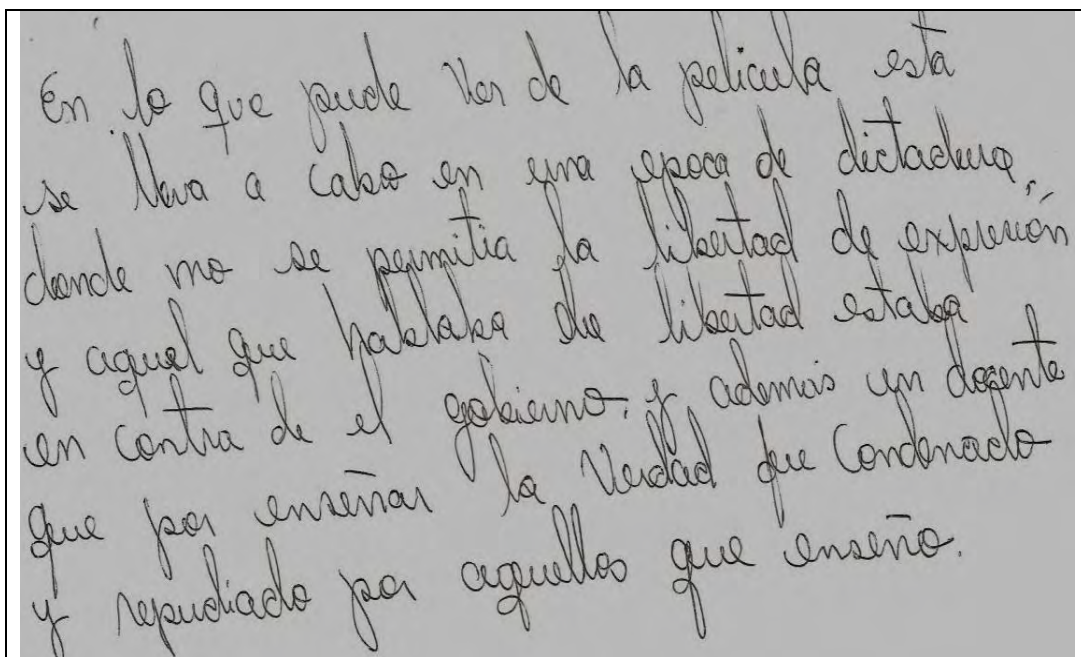 En lo que pude ver de la pelicula esta
se lleva a cabo en una epoca de dictadura,
donde no se permitia la libertad de expresión
y aquel que hablaba de libertad estaba
en contra de el gobierno. y además un docente
que por enseñar la verdad fue condenado
y repudiado por aquellos que enseño.